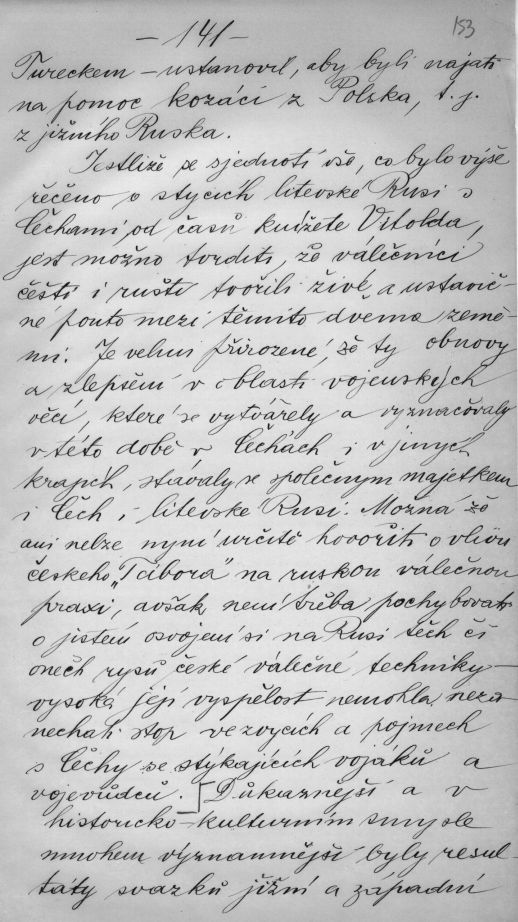 – 141 –
153
Tureckem – ustanovil, aby byli najati
na pomoc kozáci z Polska, t. j.
z jižního Ruska.
Jestliže se sjednotí vše, co bylo výše
řečěno o stycích litevské Rusi s
Čechami, od časů knížete Vitolda,
jest možno tvrditi, že válečníci
čeští i ruští tvořili živé a ustavič-
né pouto mezi těmito dvěma země-
mi. Je velmi přirozené, že ty obnovy
a zlepšění v oblasti vojenských
věcí, které se vytvářely a vyznačovaly
v této době v Čechách i v jiných
krajích, stávaly se společným majetkem
i Čech i litevské Rusi. Možná že
ani nelze nyní určitě hovořiti o vlivu
českeho „Tábora" na ruskou válečnou
praxi, avšak není třeba pochybovati
o jistém osvojení si na Rusi těch či
oněch rysů české válečné techniky –
vysoká její vyspělost nemohla neza-
nechati stop ve zvycích a pojmech
s Čechy se stýkajících vojáků a
vojevůdců. [Důkaznější a v
historicko-kulturním smysle
mnohem významnější byly resul-
táty svazků jižní a západní